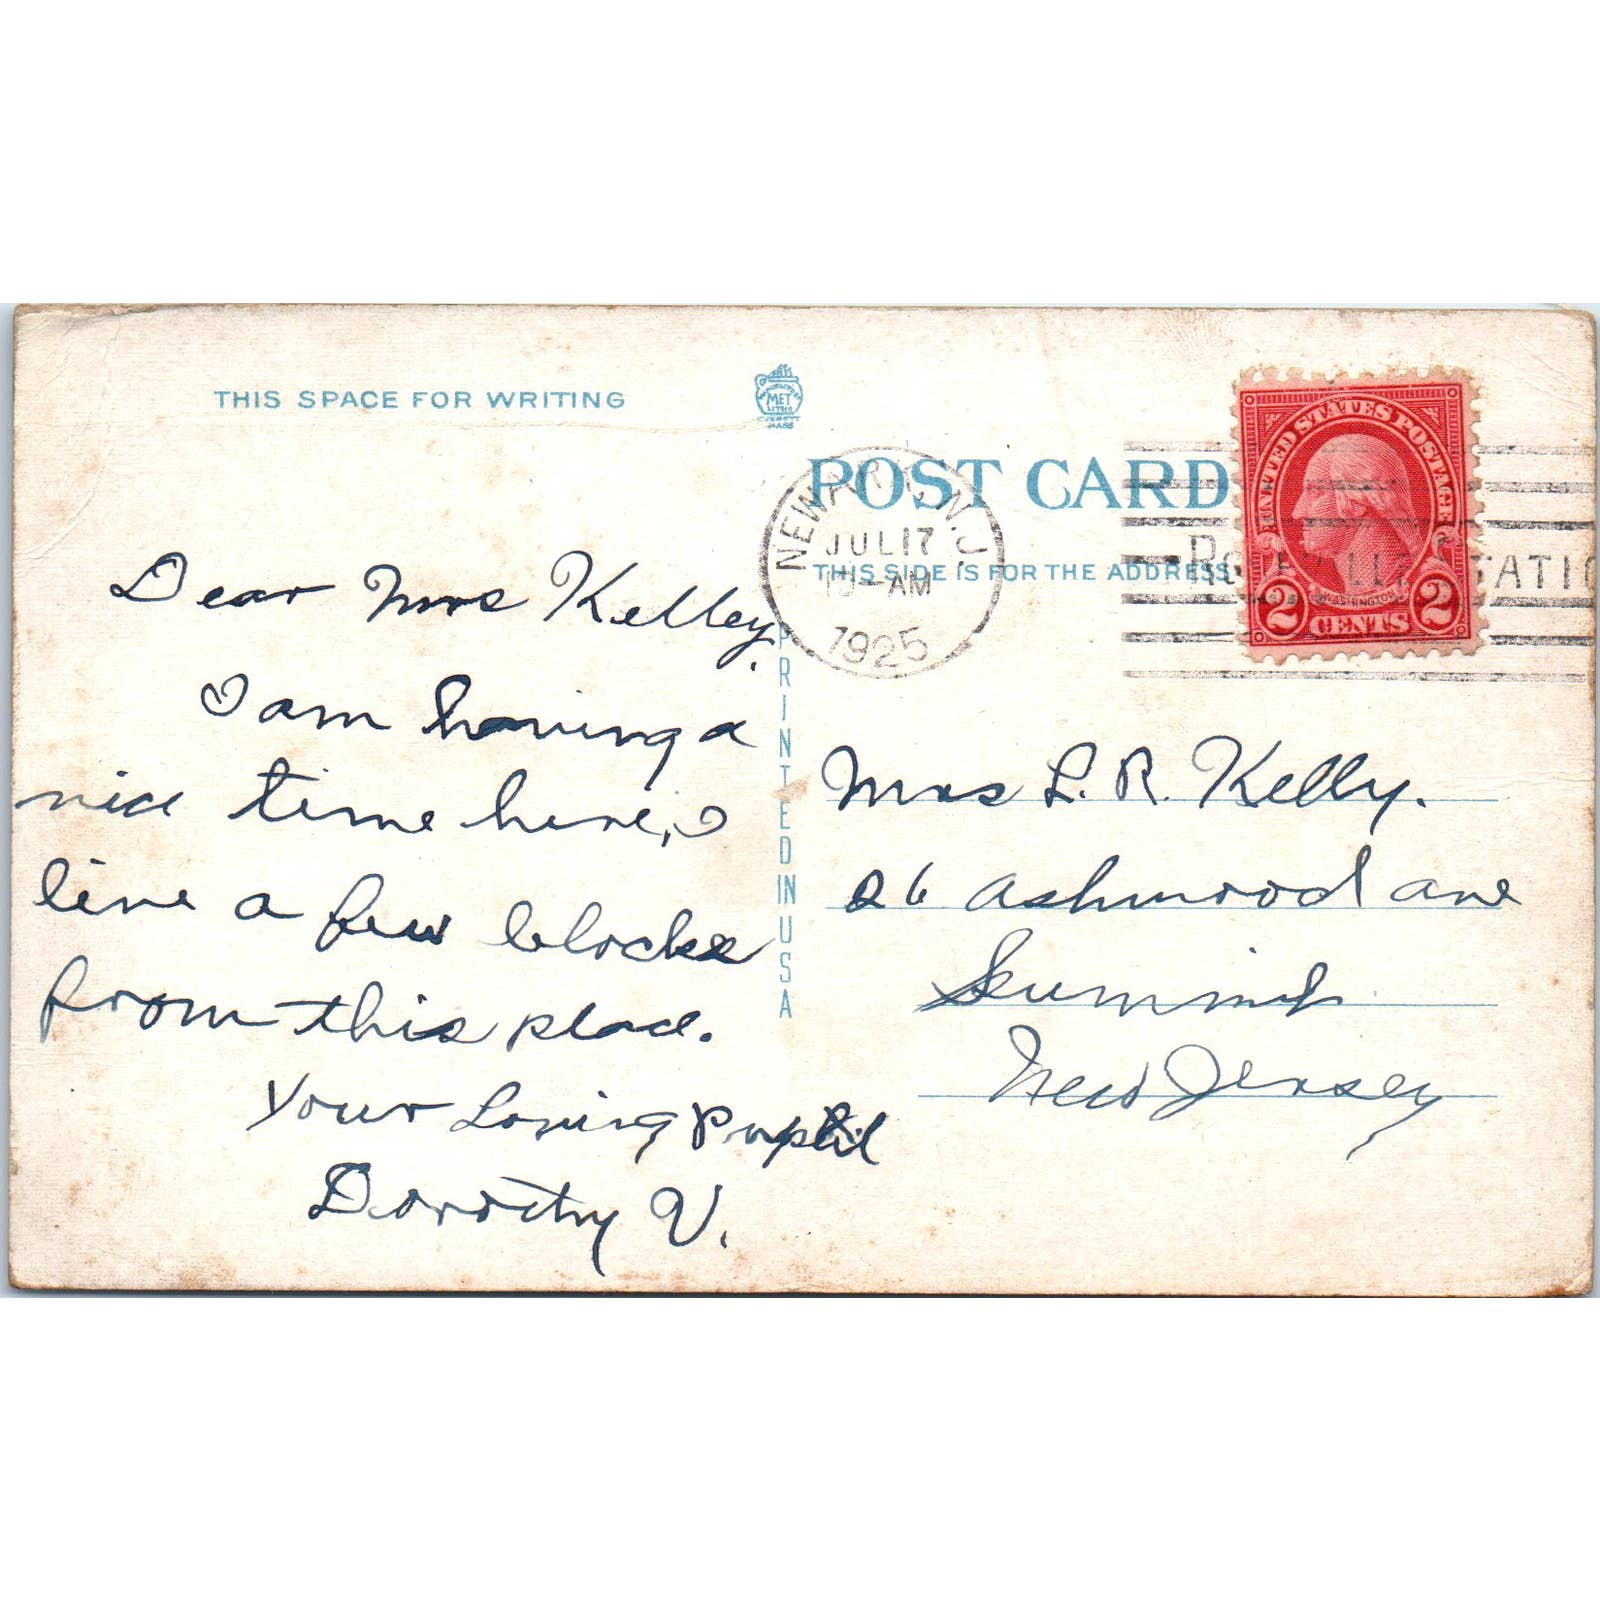 THIS SPACE FOR WRITING
MET
LITHO
EVERETT
MASS
POST CARD
THIS SIDE IS FOR THE ADDRESS
NEWARK, N.J.
JUL 17
AM
1925
ROSEVILLE STATIO
UNITED STATES POSTAGE
WASHINGTON
2 CENTS 2
PRINTED IN USA
Dear Mrs Kelley,
I am having a
nice time here, I
live a few blocks
from this place.
Your Loving Pupil
Dorothy V.
Mrs L. R. Kelly.
26 Ashwood ave
Summit
New Jersey